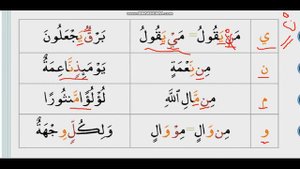 ي مَنْ يَقُولُ = مَيَّقُولُ بَرْقٌ يَجْعَلُونَ
ن مِن نِّعْمَةٍ يَوْمَئِذٍ نَّاعِمَةٌ
م مِن مَّالِ اللَّهِ لُؤْلُؤًا مَّنثُورًا
و مِن وَالٍ = مِوَّالٍ وَلِكُلٍّ وِجْهَةٌ